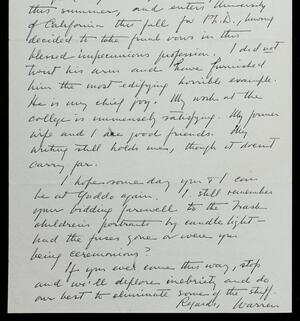 this summer, and enters University
of California this fall for Ph.D., having
decided to take final vows in this
blessed impecunious profession. I did not
twist his arm and have furnished
him the most edifying horrible example.
He is my chief joy. My work at the
college is immensely satisfying. My former
wife and I are good friends. My
writing still holds me, though it doesn't
carry far.
I hope some day you & I can
be at Yaddo again. I still remember
your bidding farewell to the Trask
children's portraits by candle light—
had the fuses gone or were you
being ceremonious?
If you ever come this way, stop
and we'll deplore inebriety and do
our best to eliminate some of the stuff.
Regards, Warren